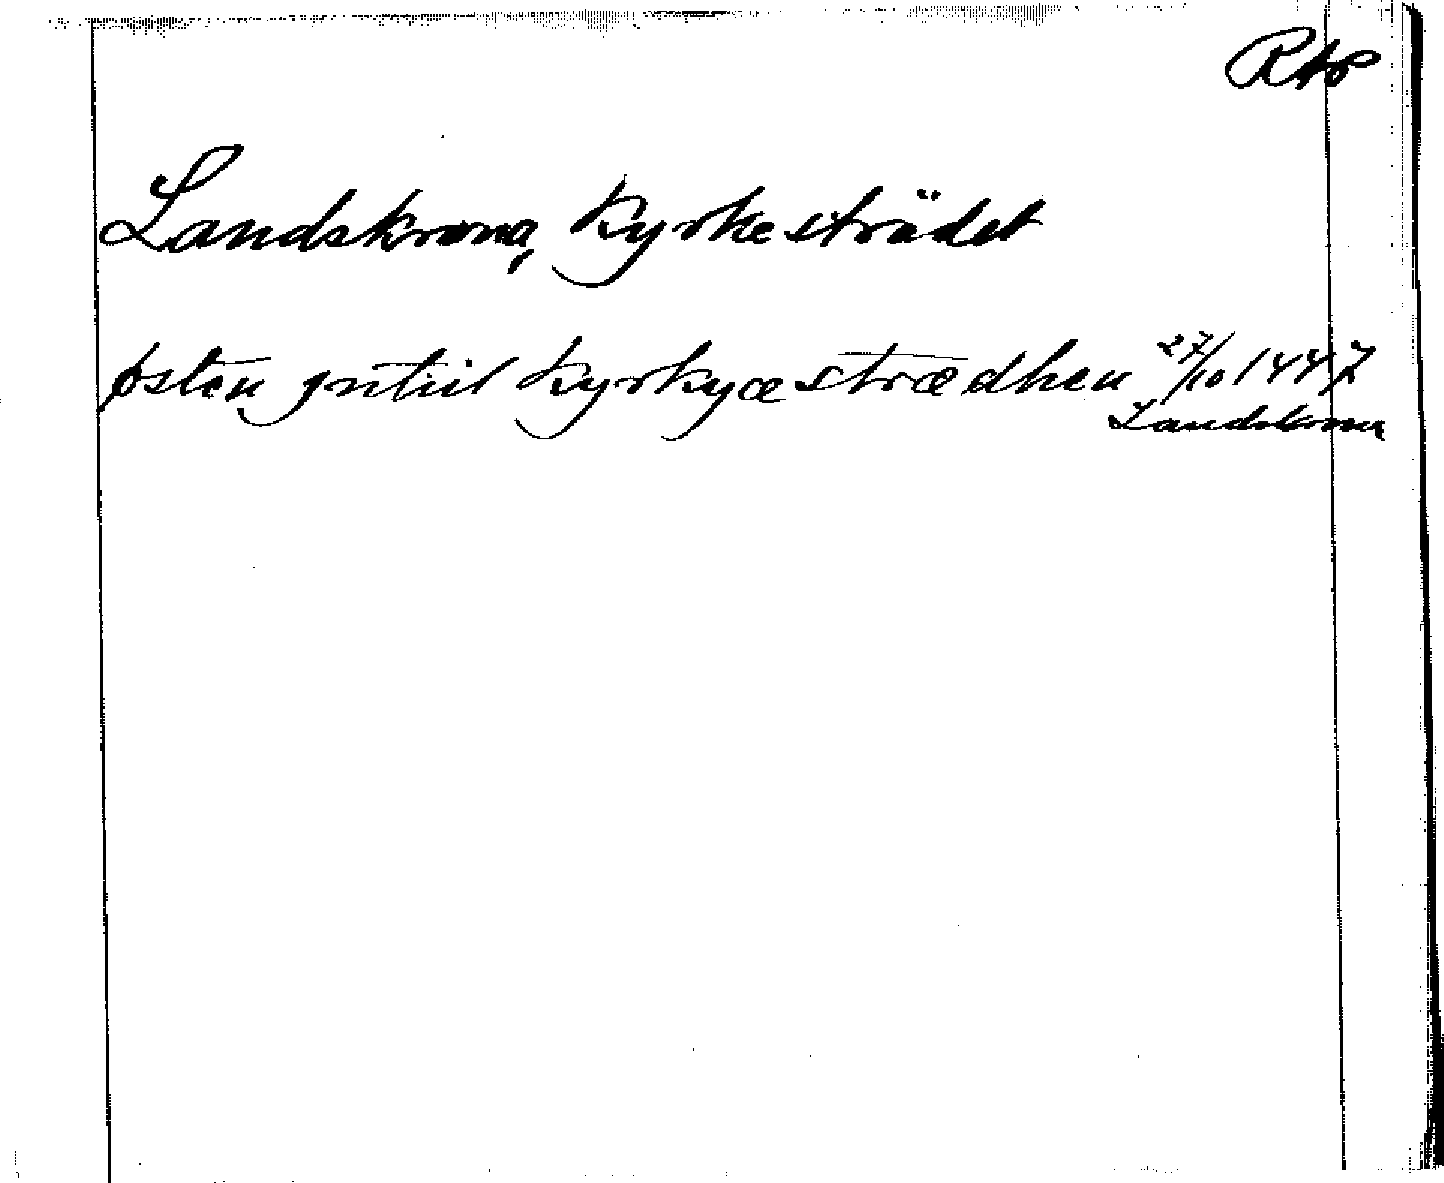 RAP
Landskrona, Kyrkesträdet
østen jntiil Kyrkyæstrædhen 27/10 1447
Landskrona